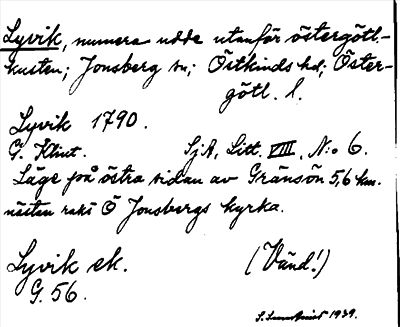 Lyvik, numera udde utanför östergötl.-
kusten; Jonsberg sn; Östkinds hd; Öster-
götl. l.
Lyvik 1790.
G. Klint. SjA, Litt. VIII, N:o 6.
Läge på östra sidan av Gränsön 5,6 km.
nästan rakt Ö Jonsbergs kyrka.
Lyvik ek. (Vänd!)
G. 56.
S. 1939.